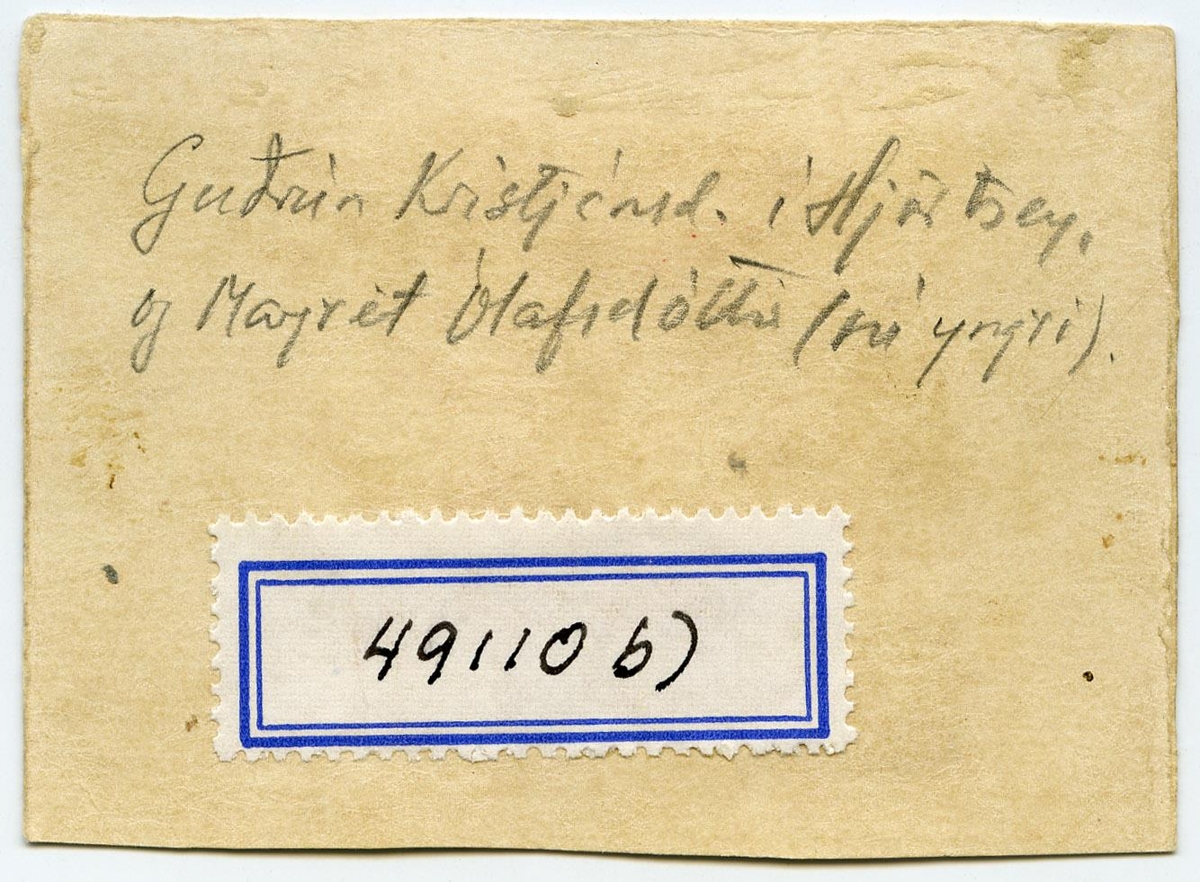 Guðrún Kristjánsd. í Hjörtsey,
og Margrét Ólafsdóttir (sú yngri).
49110 b)